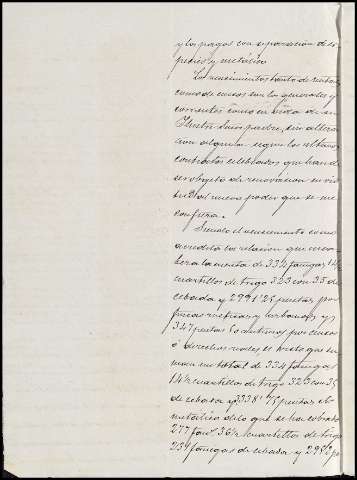 y los pagos con separacion de es
pecies y metalico
Los vencimientos tanto de rentas
como de censos son los generales y
corrientes como en vida de su
Ilustre Señor padre, sin altera
cion alguna segun los ultimos
contratos celebrados que han de
ser objeto de renovacion en vir
tud del nuevo poder que se me
confiera.
Siendo el vencimiento como
acredita la relacion que enca
beza la cuenta de 334 fanegas 14½
cuartillos de trigo 323 con 35 de
cebada y 2991'25 pesetas por
fincas rusticas y urbanas y
347 pesetas 50 centimos por censos
ó derechos reales el resto que su
man en total de 334 fanegas
14½ cuartillos de trigo 323 con 35
de cebada y 3338'75 pesetas en
metalico de lo que se ha cobrado
277 fan.s 36½ cuartillos de trigo
239 fanegas de cebada y